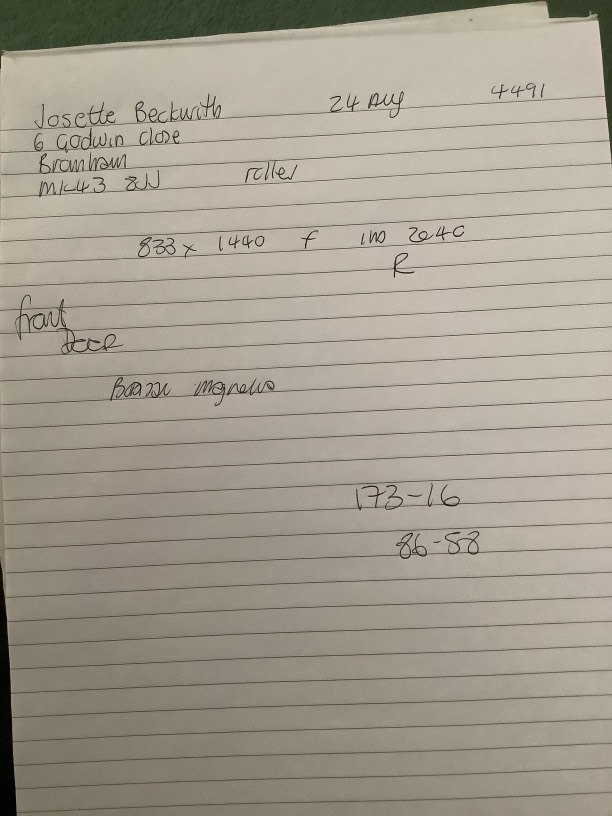 Josette Beckwith 24 Aug 4491
6 Godwin close
Bromham
MK43 8JJ roller
833 x 1440 f ino 2040
R
front
Door
magnolia
173-16
86-58